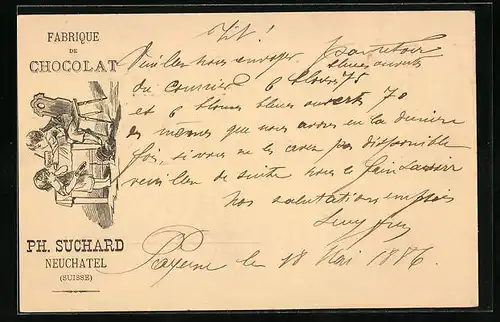 FABRIQUE
DE
CHOCOLAT
PH. SUCHARD
NEUCHATEL
(SUISSE)
Tit!
Veuillez nous envoyer par retour
blouses ouverts
du courrier 6 blouses 75
et 6 blouses bleues ouverts 70
les mêmes que nous avons eu la dernière
fois, si vous ne les avez pas disponible
veuillez de suite nous le faire savoir
nos salutations empressées
Payerne le 18 Mai 1886